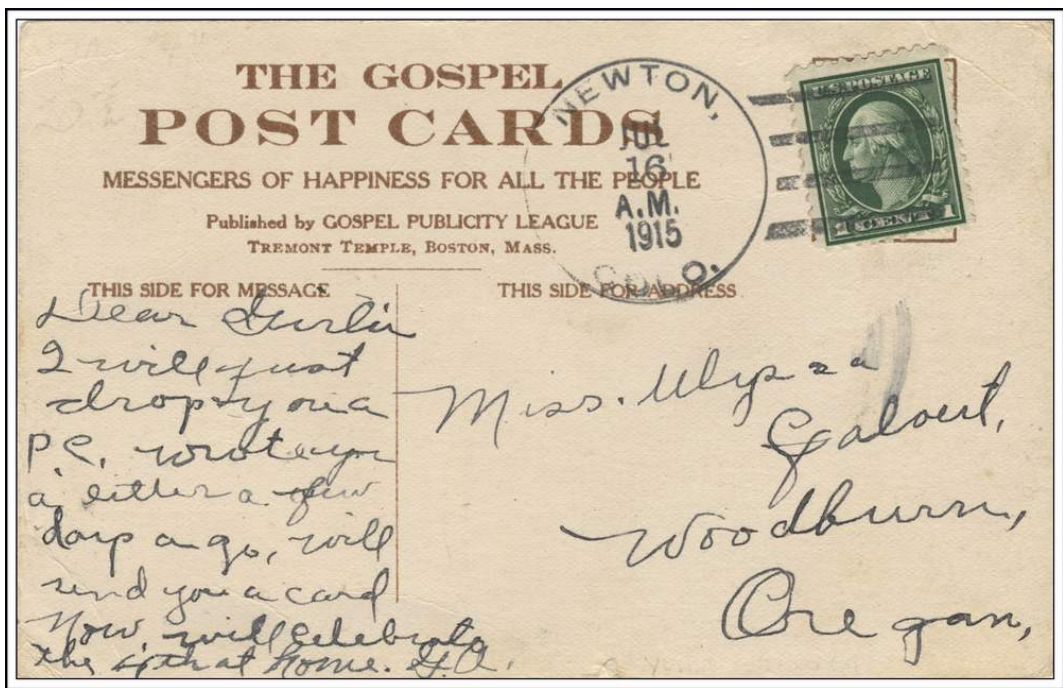 THE GOSPEL
POST CARDS
MESSENGERS OF HAPPINESS FOR ALL THE PEOPLE
Published by GOSPEL PUBLICITY LEAGUE
TREMONT TEMPLE, BOSTON, MASS.
NEWTON,
JUL
16
A.M.
1915
COLO.
U.S. POSTAGE
1 CENT 1
THIS SIDE FOR MESSAGE
THIS SIDE FOR ADDRESS
Dear
I will just
drop you a
P.C. wrote you
a letter a few
days ago, will
send you a card
Now, will celebrate
the 4th at home.
Miss.
Woodburn,
Oregon,